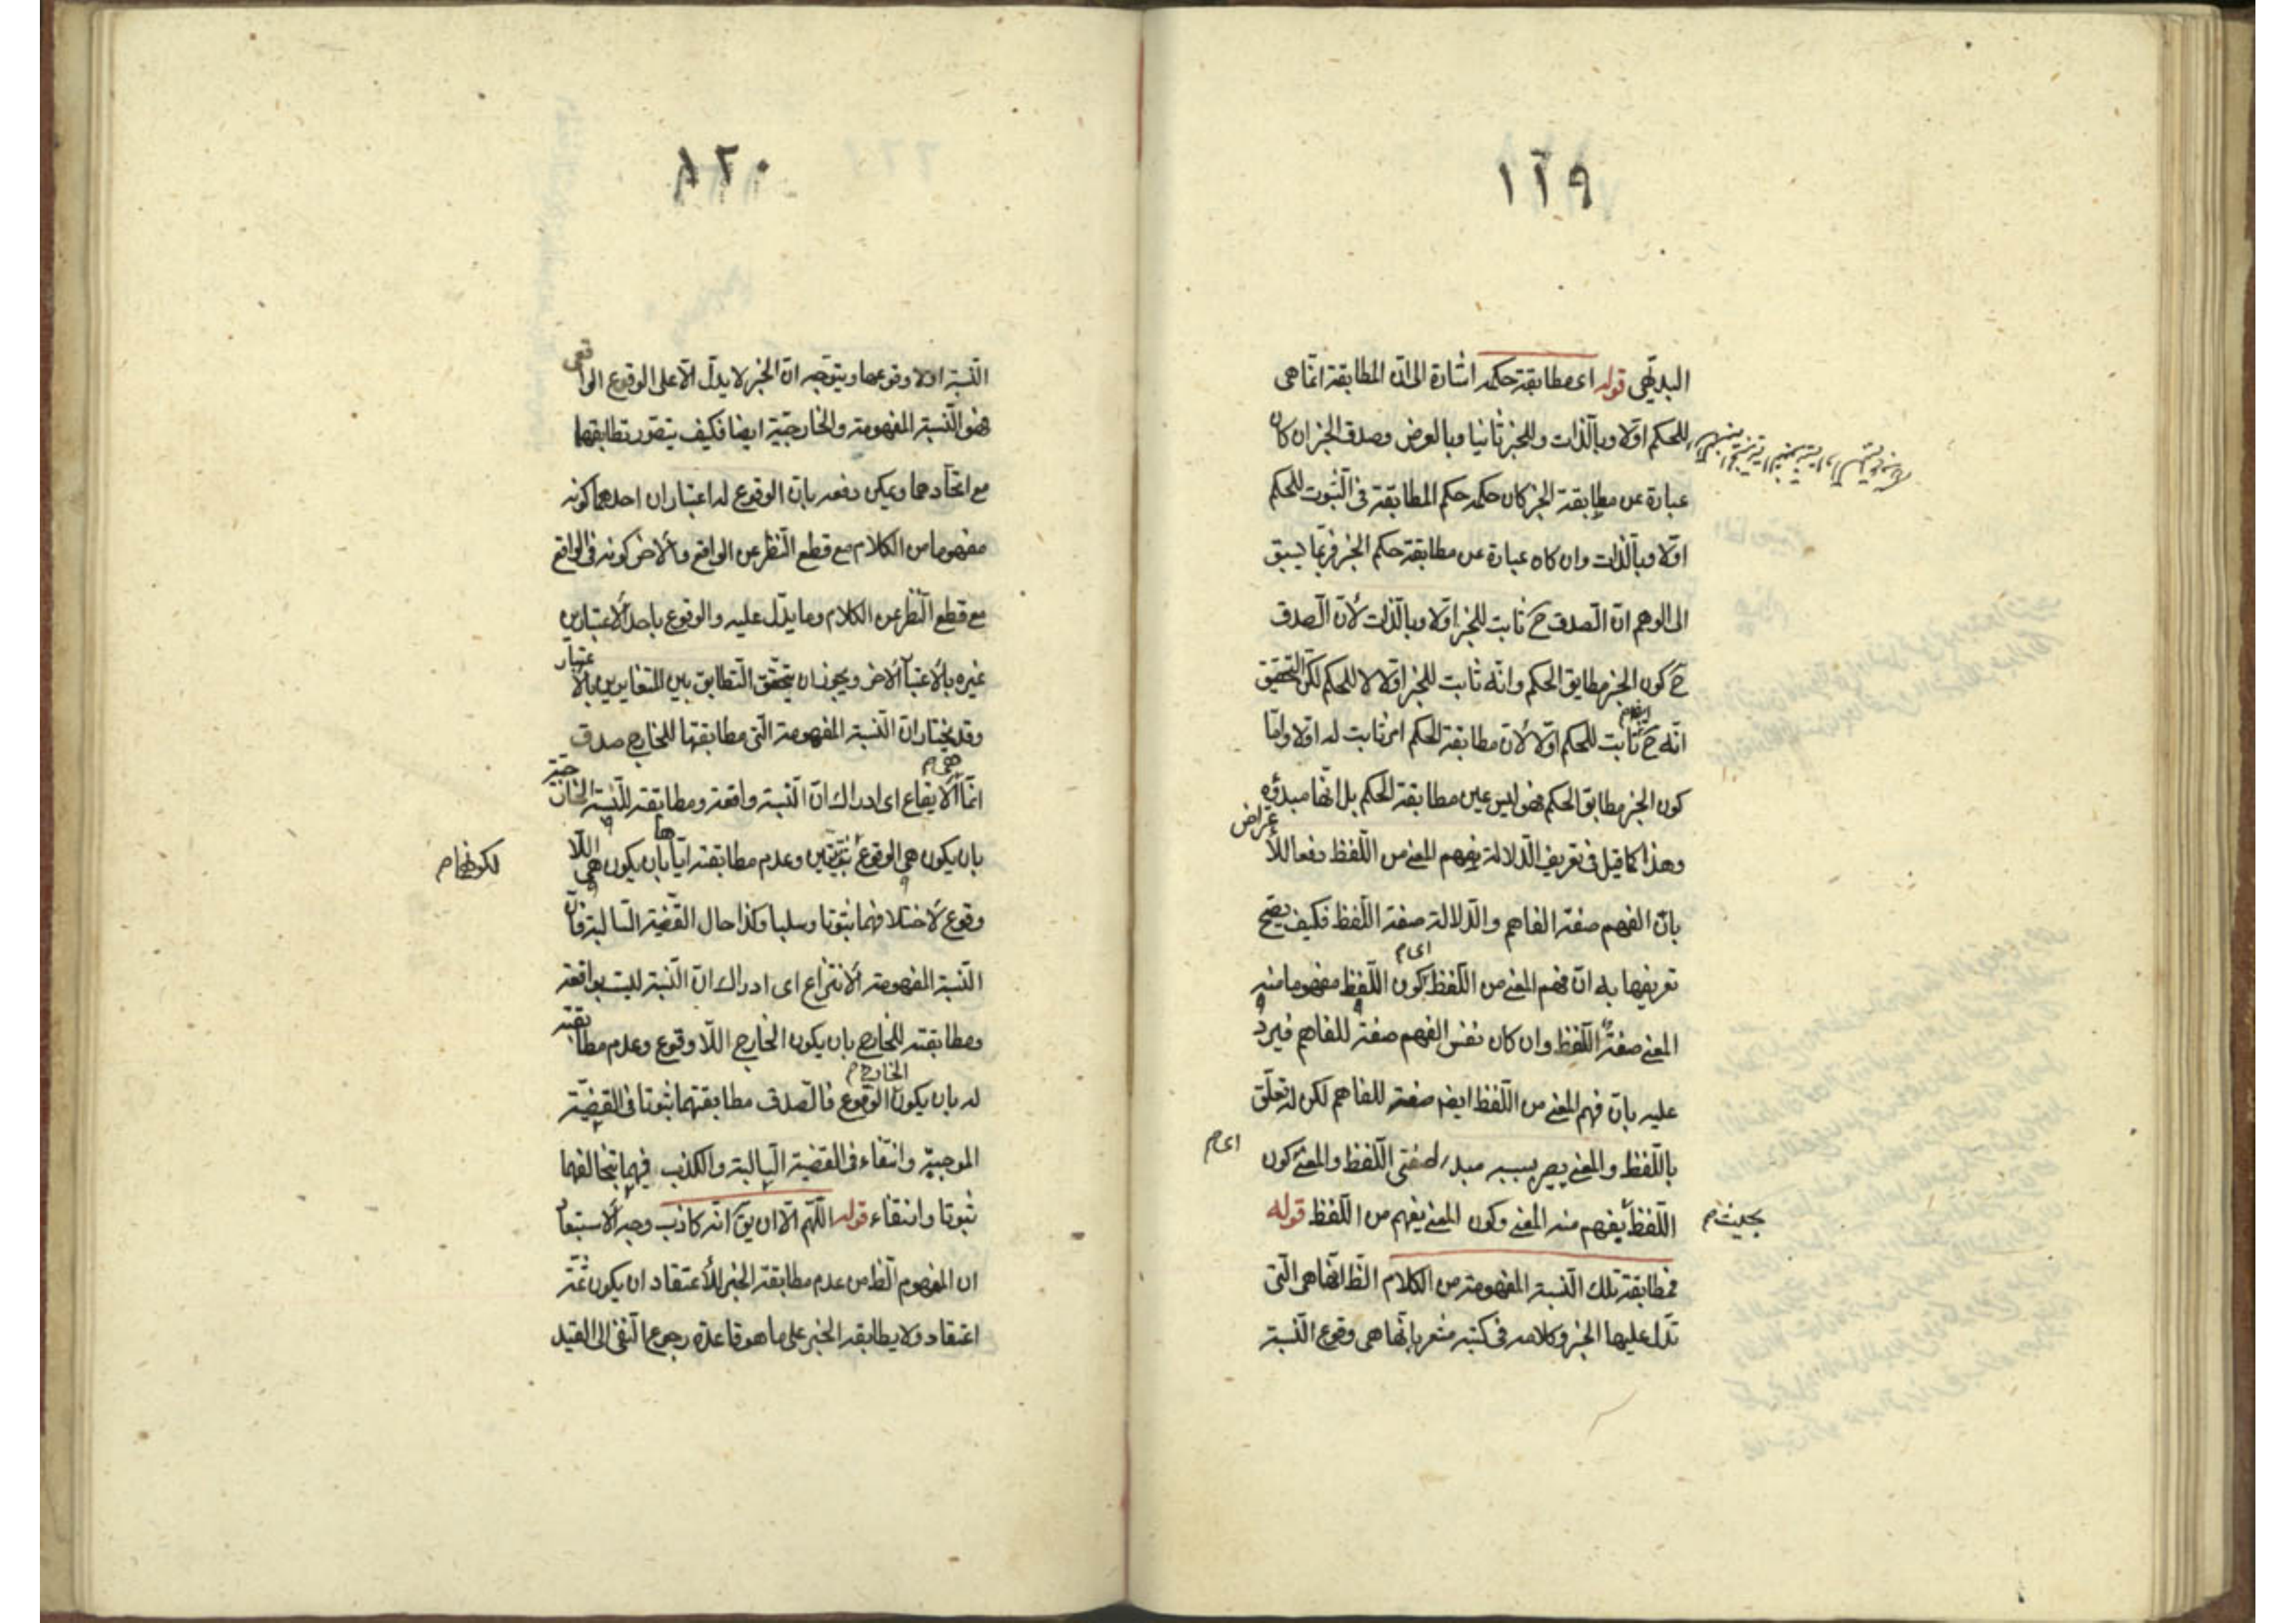 ١١٩
البديهى قوله اى مطابقة حكمه اشارة الى ان المطابقة انما هى
للحكم اولا وبالذات وللخبر ثانيا وبالعرض وصدق الخبر ان كان
عبارة عن مطابقة الخبر كان حكمه حكم المطابقة فى الثبوت للحكم
اولا وبالذات وان كان عبارة عن مطابقة حكم الخبر فربما يسبق
الى الوهم ان الصدق ح ثابت للخبر اولا وبالذات لأن الصدق
ح كون الخبر مطابق الحكم وانه ثابت للخبر اولا لا للحكم لكن التحقيق
انه ح ايضا م ثابت للحكم اولا لأن مطابقة الحكم امر ثابت له اولا واما
كون الخبر مطابق الحكم فهو ليس عين مطابقة الحكم بل انها مبدؤه
وهذا كما قيل فى تعريف الدلالة بفهم المعنى من اللفظ دفعا للأعراض
بان الفهم صفة الفاهم والدلالة صفة اللفظ فكيف يصح
تعريفها به ان فهم المعنى من اللفظ اى م كون اللفظ مفهوما منه
المعنى صفة اللفظ وان كان نفس الفهم صفة للفاهم فيرد
عليه بان فهم المعنى من اللفظ ايضا صفة للفاهم لكن له تعلق
باللفظ والمعنى يصير بسببه مبدء لصفتى اللفظ والمعنى كون
اى م
اللفظ يفهم منه المعنى وكون المعنى يفهم من اللفظ قوله
بحيث م
فمطابقة تلك النسبة المفهومة من الكلام الظ انها هى التى
تدل عليها الخبر وكلامه فى كتبه مشعر بانها هى وقوع النسبة
١٢٠
النسبة اولا وقوعها ويتوجه ان الخبر لا يدل الا على الوقوع الواقعى
فهو النسبة المفهومة والخارجية ايضا فكيف يتصور تطابقها
مع اتحادهما ويمكن دفعه بان الوقوع له اعتباران احدهما كونه
مفهوما من الكلام مع قطع النظر عن الواقع والأخر كونه فى الواقع
مع قطع النظر عن الكلام وما يدل عليه والوقوع باحد الأعتبارين
غيره بالأعتبار الأخر ويجوز ان يتحقق التطابق بين المتغايرين بالأعتبار
وقد يختار ان النسبة المفهومة التى مطابقتها للخارج صدق
انما هى م الأيقاع اى ادراك ان النسبة واقعة ومطابقته للنسبة الخارجية
بان يكون هى الوقوع ثبوتيين وعدم مطابقته اياها بان يكون هى اللا
لكونهما م
وقوع لأختلافهما ثبوتا وسلبا وكذا حال القضية السالبة فان
النسبة المفهومة الأنتزاع اى ادراك ان النسبة ليست بواقعة
ومطابقته للخارج بان يكون الخارج اللا وقوع وعدم مطابقته
له بان يكون الخارج م الوقوع فالصدق مطابقتهما ثبوتا فى القضية
الموجبة وانتفاء فى القضية السالبة والكذب فيهما بتخالفهما
ثبوتا وانتفاء قوله اللهم الا ان يق انه كاذب وجه الأستبعاد
ان المفهوم الظ من عدم مطابقة الخبر للأعتقاد ان يكون ثمة
اعتقاد ولا يطابقه الخبر على ما هو قاعدة رجوع النفى الى القيد